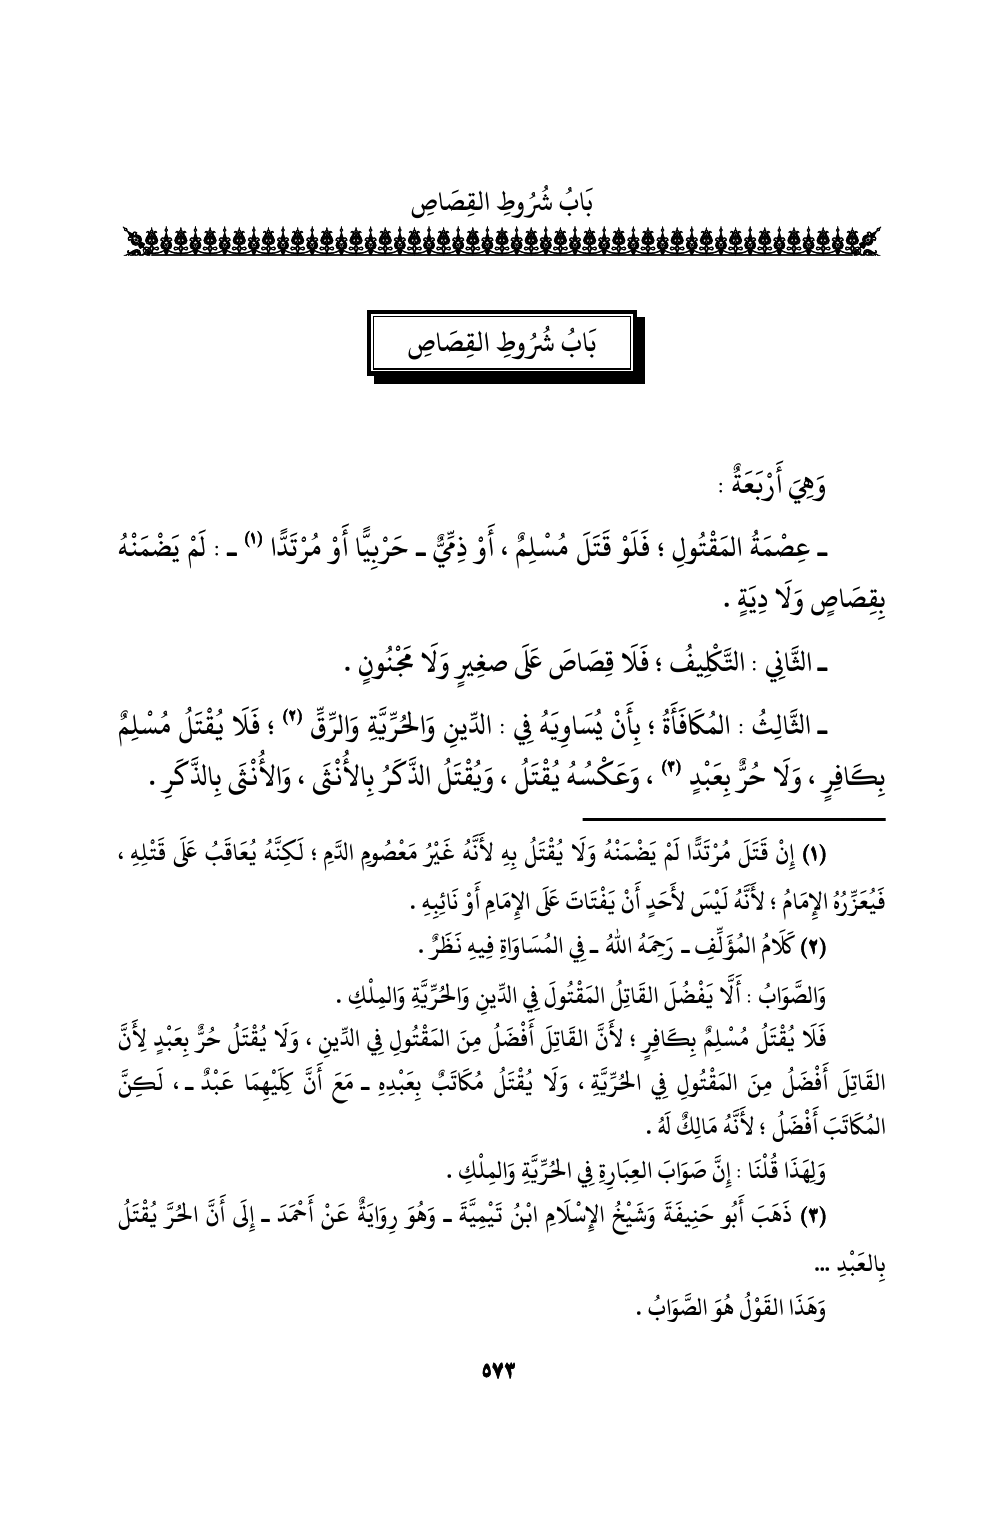 بَابُ شُرُوطِ القِصَاصِ
بَابُ شُرُوطِ القِصَاصِ
وَهِيَ أَرْبَعَةٌ :
ـ عِصْمَةُ المَقْتُولِ ؛ فَلَوْ قَتَلَ مُسْلِمٌ ، أَوْ ذِمِّيٌّ ـ حَرْبِيًّا أَوْ مُرْتَدًّا (١) ـ : لَمْ يَضْمَنْهُ
بِقِصَاصٍ وَلَا دِيَةٍ .
ـ الثَّانِي : التَّكْلِيفُ ؛ فَلَا قِصَاصَ عَلَى صغِيرٍ وَلَا مَجْنُونٍ .
ـ الثَّالِثُ : المُكَافَأَةُ ؛ بِأَنْ يُسَاوِيَهُ فِي : الدِّينِ وَالحُرِّيَّةِ وَالرِّقِّ (٢) ؛ فَلَا يُقْتَلُ مُسْلِمٌ
بِكَافِرٍ ، وَلَا حُرٌّ بِعَبْدٍ (٣) ، وَعَكْسُهُ يُقْتَلُ ، وَيُقْتَلُ الذَّكَرُ بِالأُنْثَى ، وَالأُنْثَى بِالذَّكَرِ .
(١) إِنْ قَتَلَ مُرْتَدًّا لَمْ يَضْمَنْهُ وَلَا يُقْتَلُ بِهِ لأَنَّهُ غَيْرُ مَعْصُومِ الدَّمِ ؛ لَكِنَّهُ يُعَاقَبُ عَلَى قَتْلِهِ ،
فَيُعَزِّرُهُ الإِمَامُ ؛ لأَنَّهُ لَيْسَ لأَحَدٍ أَنْ يَفْتَاتَ عَلَى الإِمَامِ أَوْ نَائِبِهِ .
(٢) كَلَامُ المُؤَلِّفِ ـ رَحِمَهُ اللهُ ـ فِي المُسَاوَاةِ فِيهِ نَظَرٌ .
وَالصَّوَابُ : أَلَّا يَفْضُلَ القَاتِلُ المَقْتُولَ فِي الدِّينِ وَالحُرِّيَّةِ وَالمِلْكِ .
فَلَا يُقْتَلُ مُسْلِمٌ بِكَافِرٍ ؛ لأَنَّ القَاتِلَ أَفْضَلُ مِنَ المَقْتُولِ فِي الدِّينِ ، وَلَا يُقْتَلُ حُرٌّ بِعَبْدٍ لِأَنَّ
القَاتِلَ أَفْضَلُ مِنَ المَقْتُولِ فِي الحُرِّيَّةِ ، وَلَا يُقْتَلُ مُكَاتَبٌ بِعَبْدِهِ ـ مَعَ أَنَّ كِلَيْهِمَا عَبْدٌ ـ ، لَكِنَّ
المُكَاتَبَ أَفْضَلُ ؛ لأَنَّهُ مَالِكٌ لَهُ .
وَلِهَذَا قُلْنَا : إِنَّ صَوَابَ العِبَارِةِ فِي الحُرِّيَّةِ وَالمِلْكِ .
(٣) ذَهَبَ أَبُو حَنِيفَةَ وَشَيْخُ الإِسْلَامِ ابْنُ تَيْمِيَّةَ ـ وَهُوَ رِوَايَةٌ عَنْ أَحْمَدَ ـ إِلَى أَنَّ الحُرَّ يُقْتَلُ
بِالعَبْدِ ...
وَهَذَا القَوْلُ هُوَ الصَّوَابُ .
٥٧٣